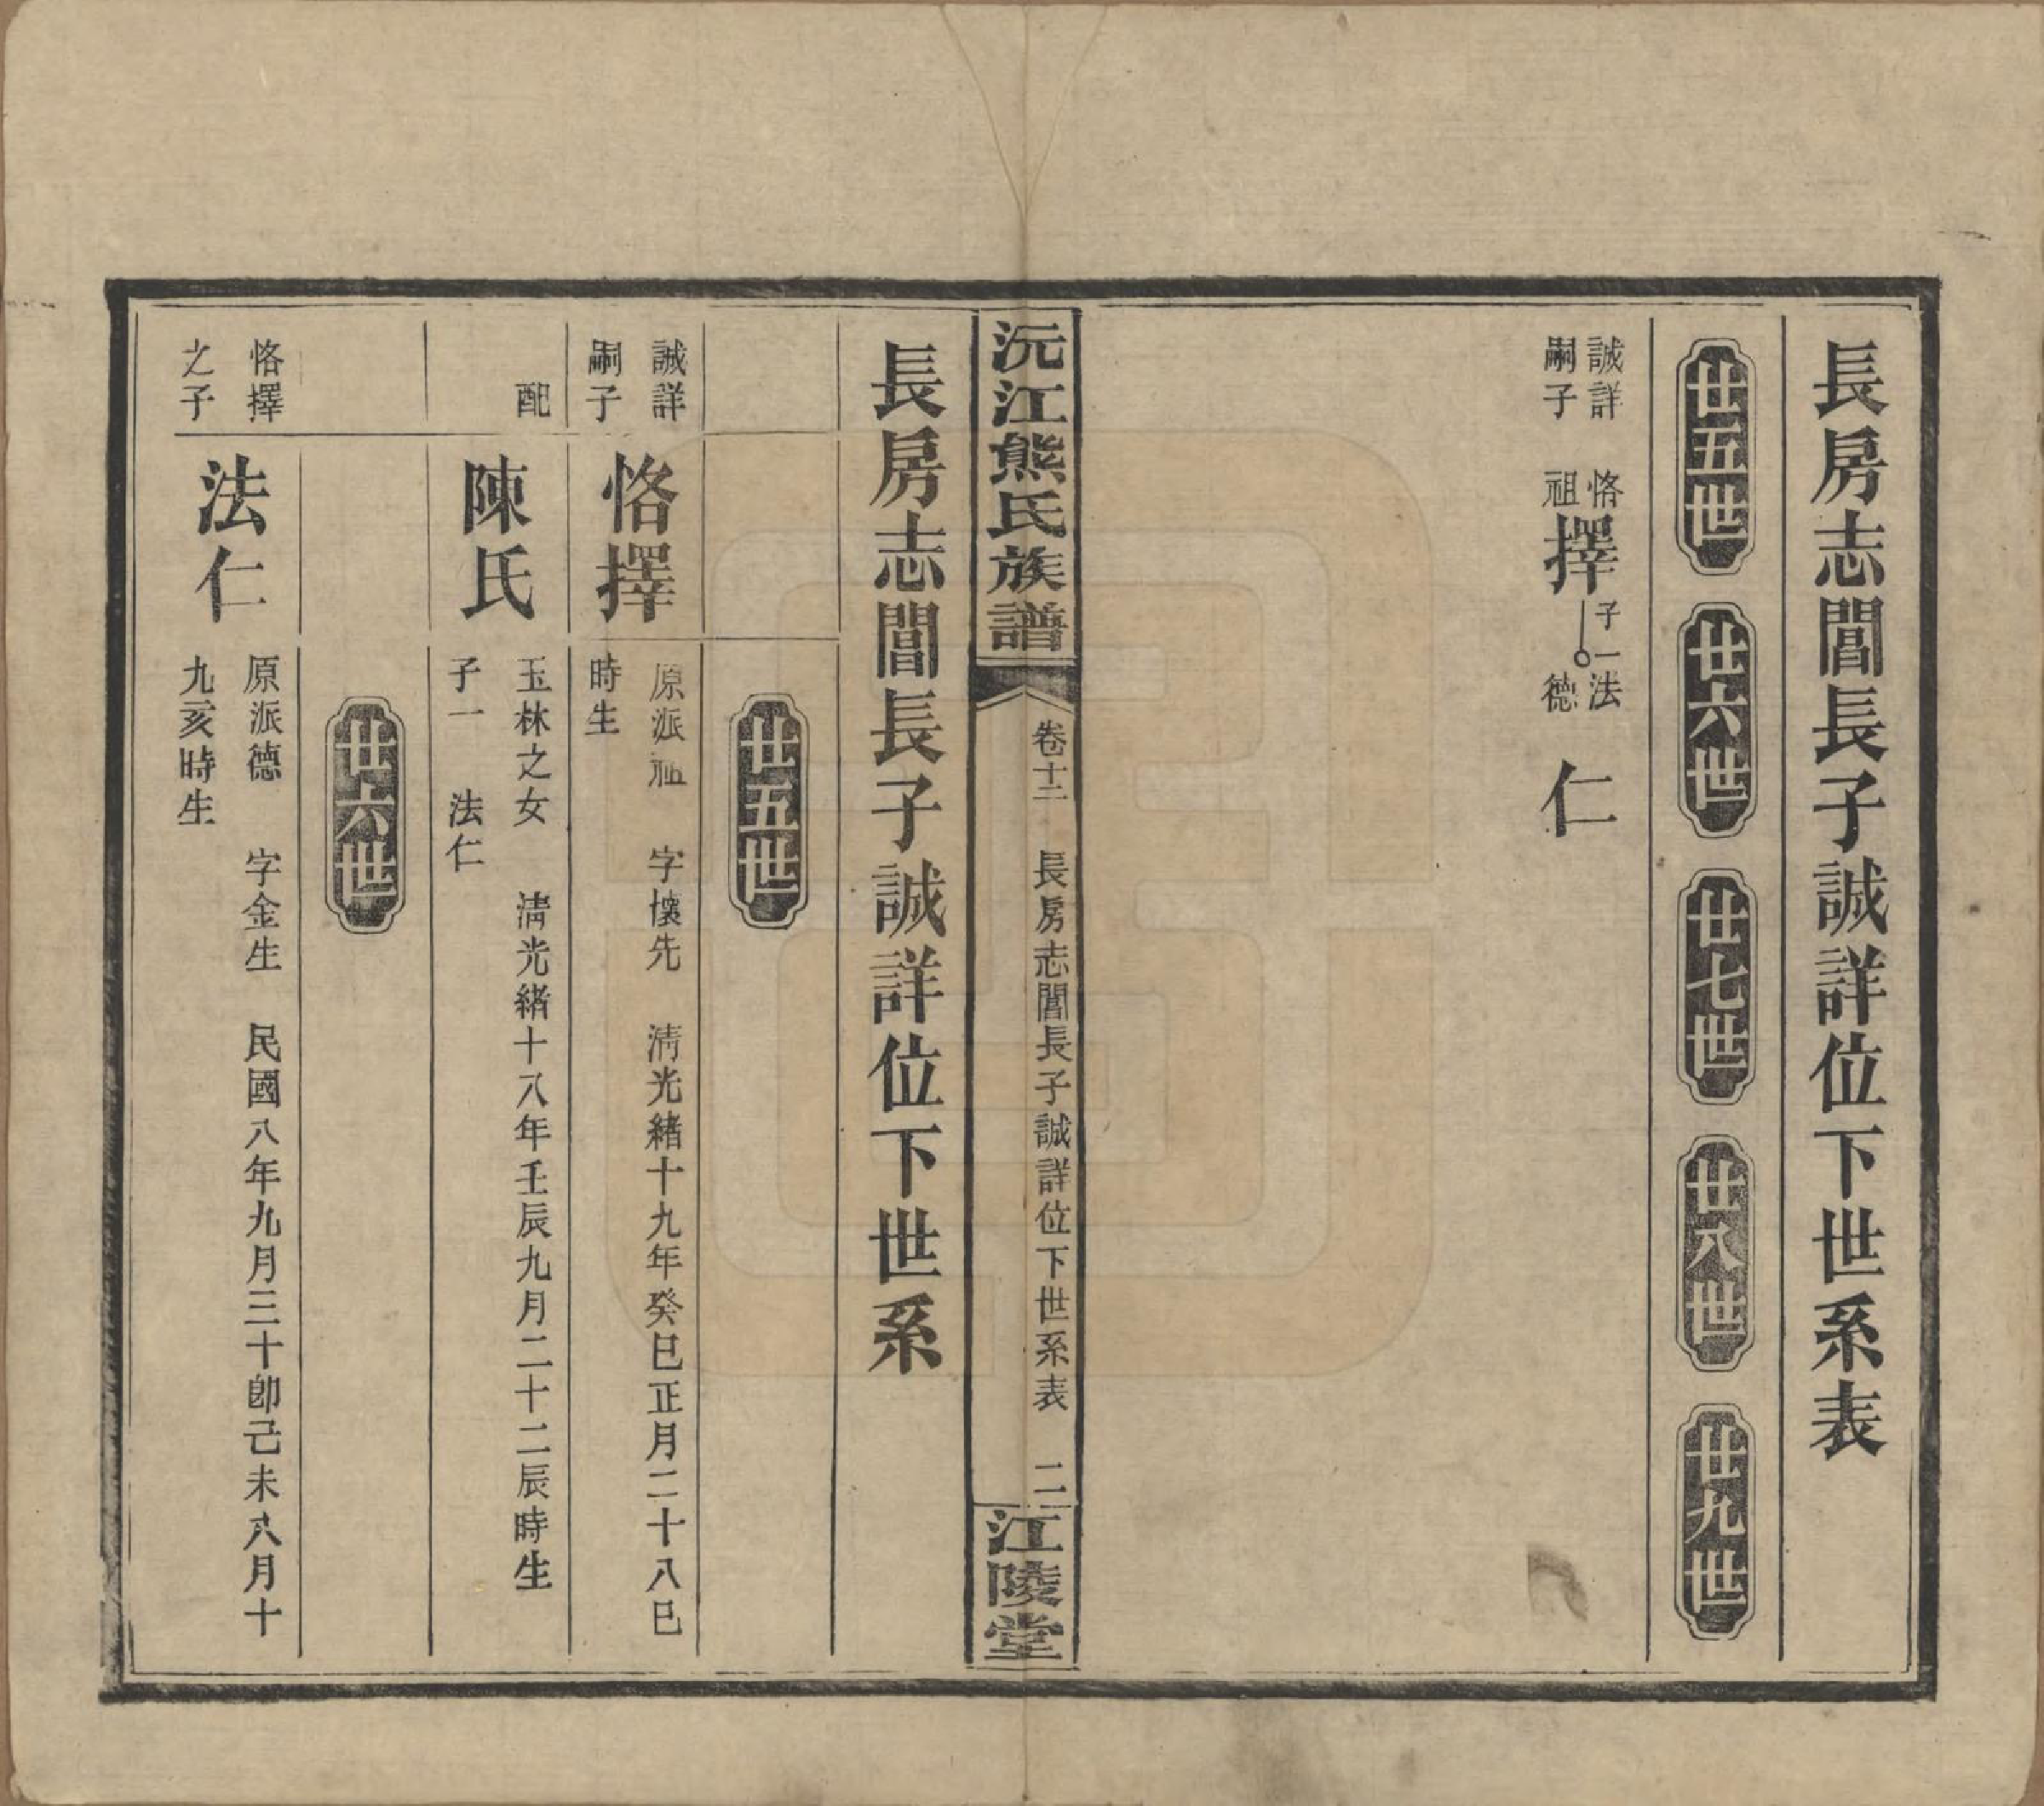 長房志閶長子誠詳位下世系表
廿五世
廿六世
廿七世
廿八世
廿九世
誠詳
嗣子
恪
祖
擇
子一
法
德
仁
沅江熊氏族譜
卷十二
長房志閶長子誠詳位下世系表
二
江陵堂
長房志閶長子誠詳位下世系
廿五世
誠詳
嗣子
恪擇
原派祖 字懷先 清光緒十九年癸巳正月二十八巳
時生
配
陳氏
玉林之女 清光緒十八年壬辰九月二十二辰時生
子一 法仁
廿六世
恪擇
之子
法仁
原派德 字金生 民國八年九月三十卽己未八月十
九亥時生